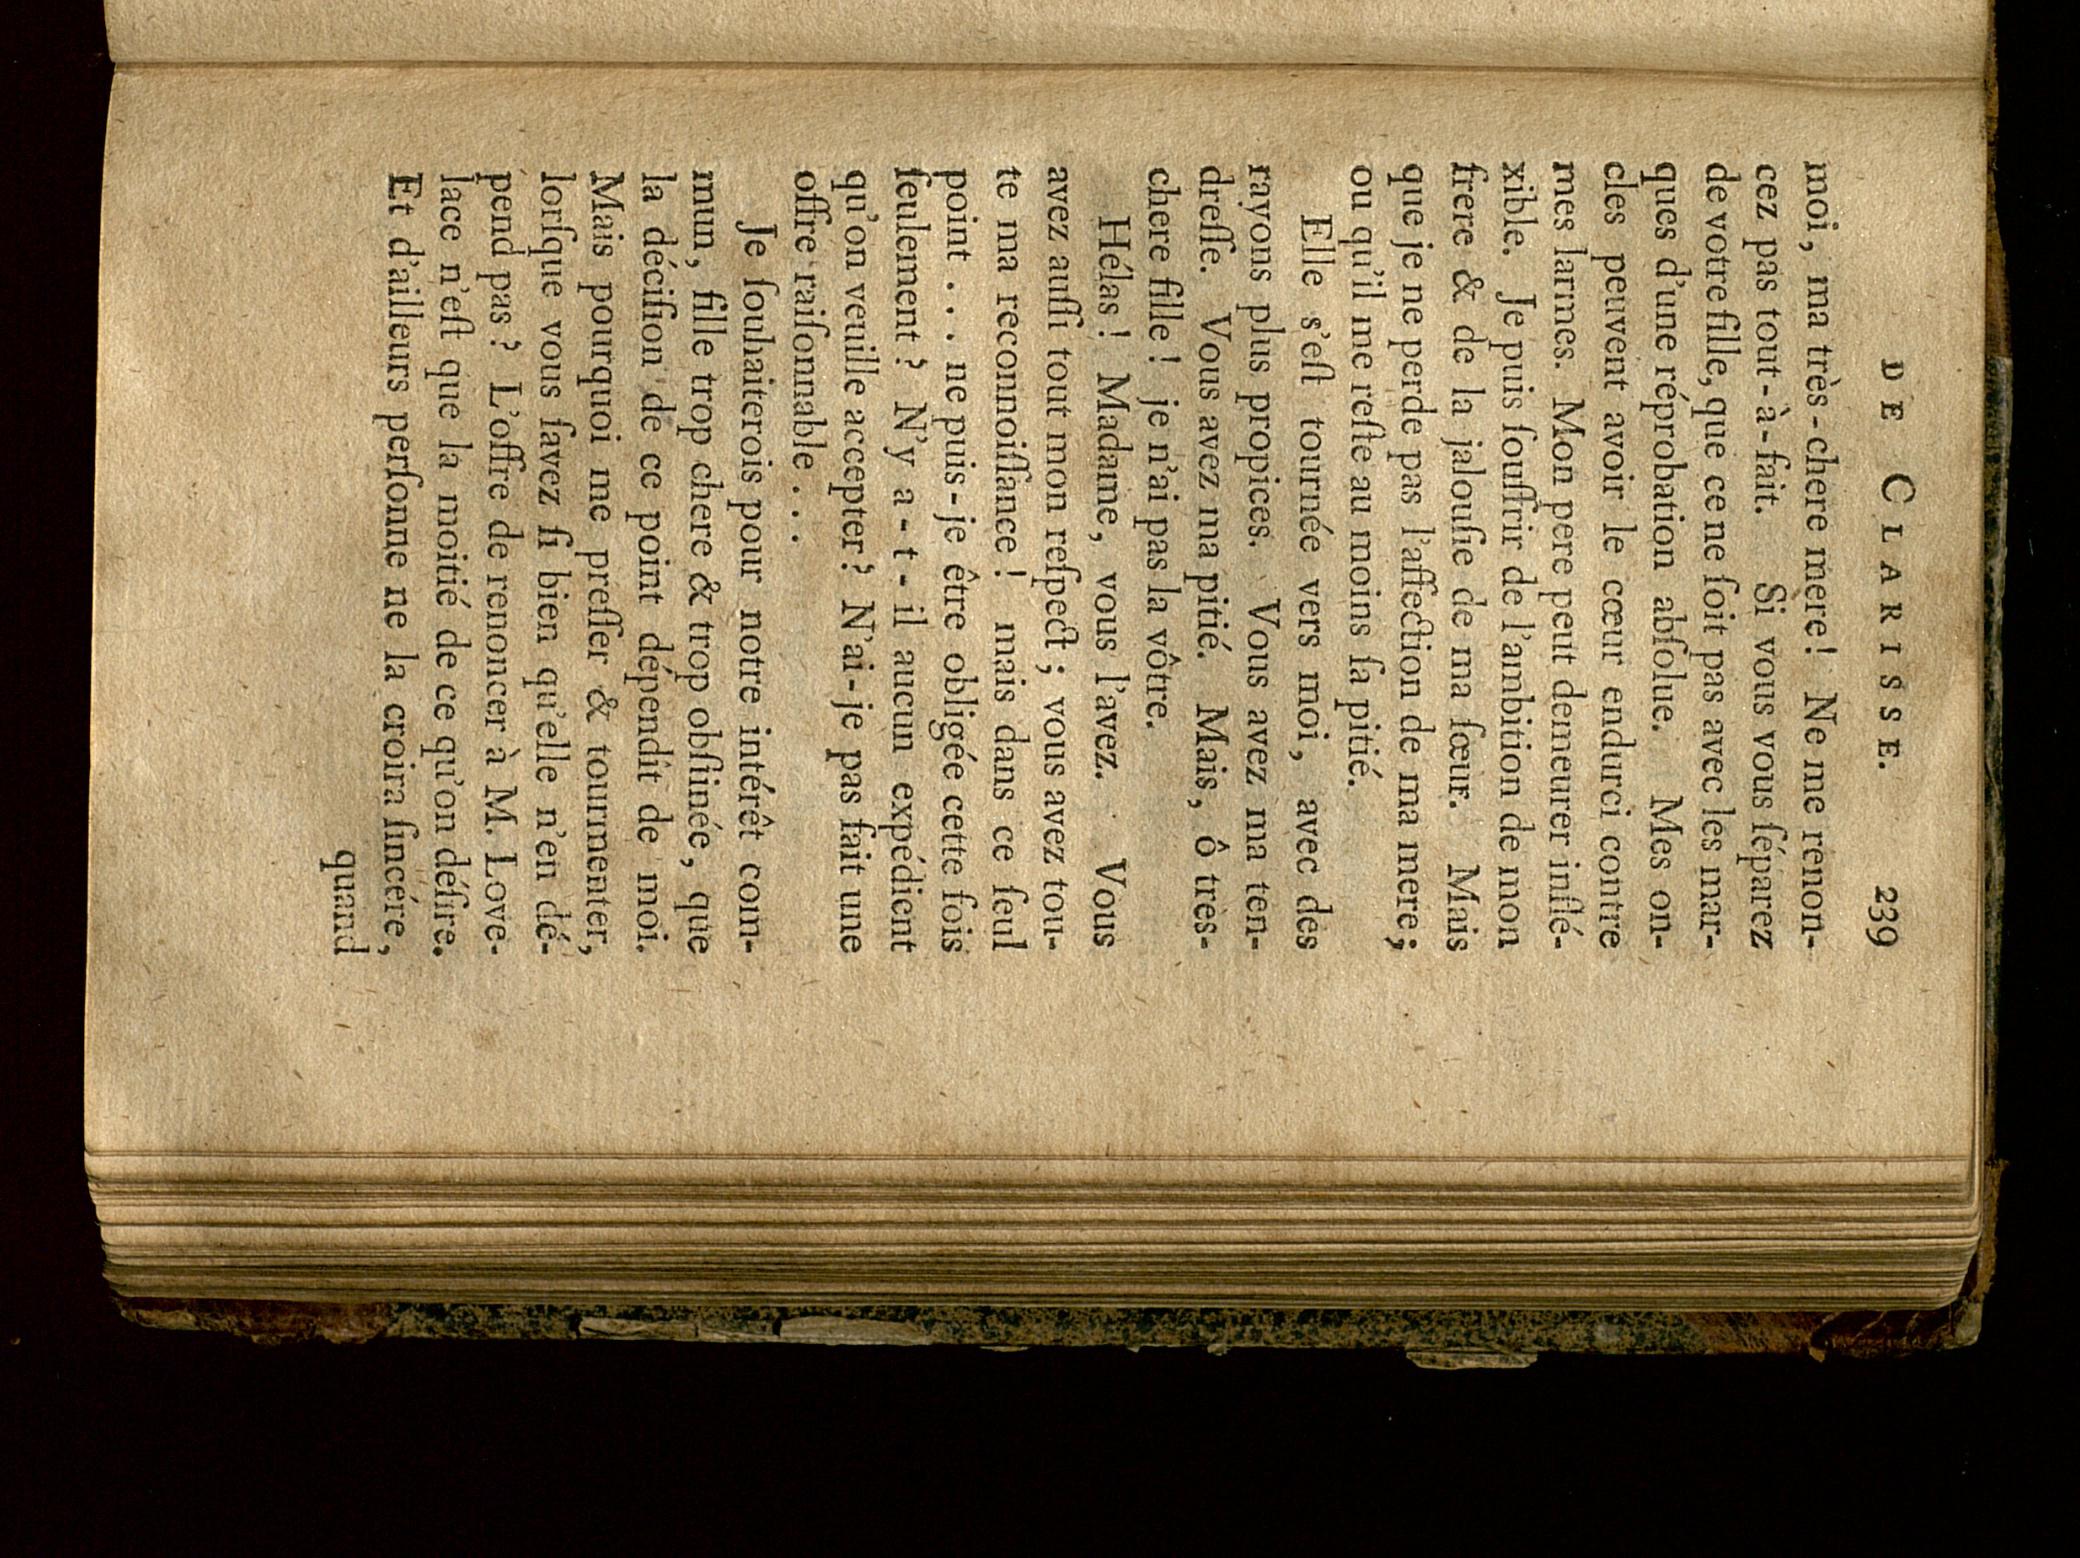 DE CLARISSE. 239
moi, ma très-chere mere! Ne me renon-
cez pas tout-à-fait. Si vous vous ſéparez
de votre fille, que ce ne ſoit pas avec les mar-
ques d'une réprobation abſolue. Mes on-
cles peuvent avoir le cœur endurci contre
mes larmes. Mon pere peut demeurer inflé-
xible. Je puis ſouffrir de l'ambition de mon
frere & de la jalouſie de ma ſœur. Mais
que je ne perde pas l'affection de ma mere;
ou qu'il me reſte au moins ſa pitié.
Elle s'eſt tournée vers moi, avec des
rayons plus propices. Vous avez ma ten-
dreſſe. Vous avez ma pitié. Mais, ô très-
chere fille! je n'ai pas la vôtre.
Hélas! Madame, vous l'avez. Vous
avez auſſi tout mon reſpect; vous avez tou-
te ma reconnoiſſance! mais dans ce ſeul
point . . . ne puis-je être obligée cette fois
ſeulement? N'y a-t-il aucun expédient
qu'on veuille accepter? N'ai-je pas fait une
offre raiſonnable . . .
Je ſouhaiterois pour notre intérêt com-
mun, fille trop chere & trop obſtinée, que
la déciſion de ce point dépendît de moi.
Mais pourquoi me preſſer & tourmenter,
lorſque vous ſavez ſi bien qu'elle n'en dé-
pend pas? L'offre de renoncer à M. Love-
lace n'eſt que la moitié de ce qu'on déſire.
Et d'ailleurs perſonne ne la croira ſincére,
quand